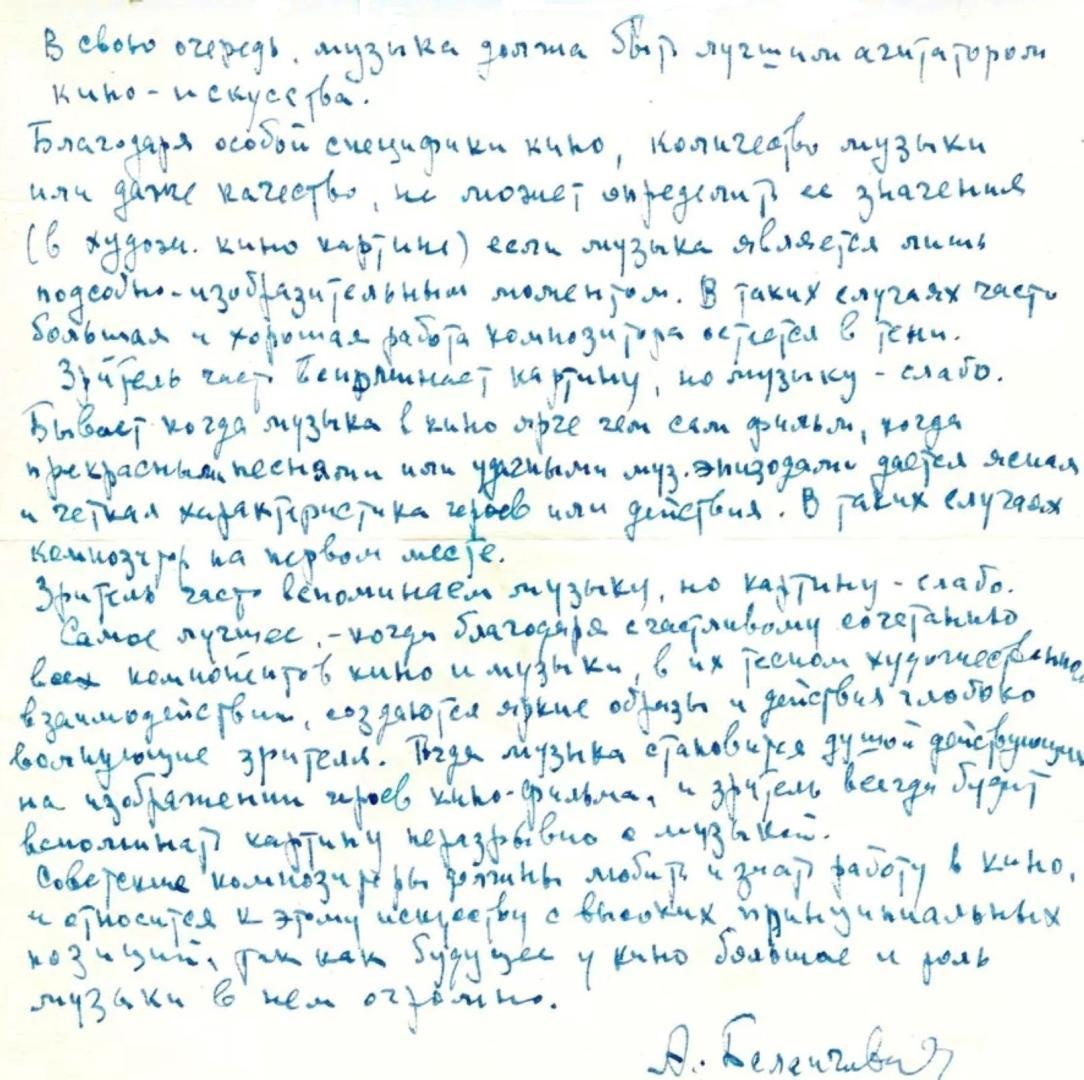 В свою очередь, музыка должна быть лучшим агитатором
кино-искусства.
Благодаря особой специфики кино, количество музыки
или даже качество, не может определить ее значения
(в худож. кино картине) если музыка является лишь
подсобно-изобразительным моментом. В таких случаях часто
большая и хорошая работа композитора остается в тени.
Зритель часто вспоминает картину, но музыку - слабо.
Бывает когда музыка в кино ярче чем сам фильм, когда
прекрасными песнями или удачными муз. эпизодами дается ясная
и четкая характеристика героев или действия. В таких случаях
композитор на первом месте.
Зритель часто вспоминаем музыку, но картину - слабо.
Самое лучшее, - когда благодаря счастливому сочетанию
всех компонентов кино и музыки, в их тесном художественном
взаимодействии, создаются яркие образы и действия глубоко
волнующие зрителя. Тогда музыка становится душой действующих
на изображении героев кино-фильма, и зритель всегда будет
вспоминать картину неразрывно с музыкой.
Советские композиторы должны любить и знать работу в кино,
и относится к этому искусству с высоких принципиальных
позиций, так как будущее у кино большое и роль
музыки в нем огромно.
А.